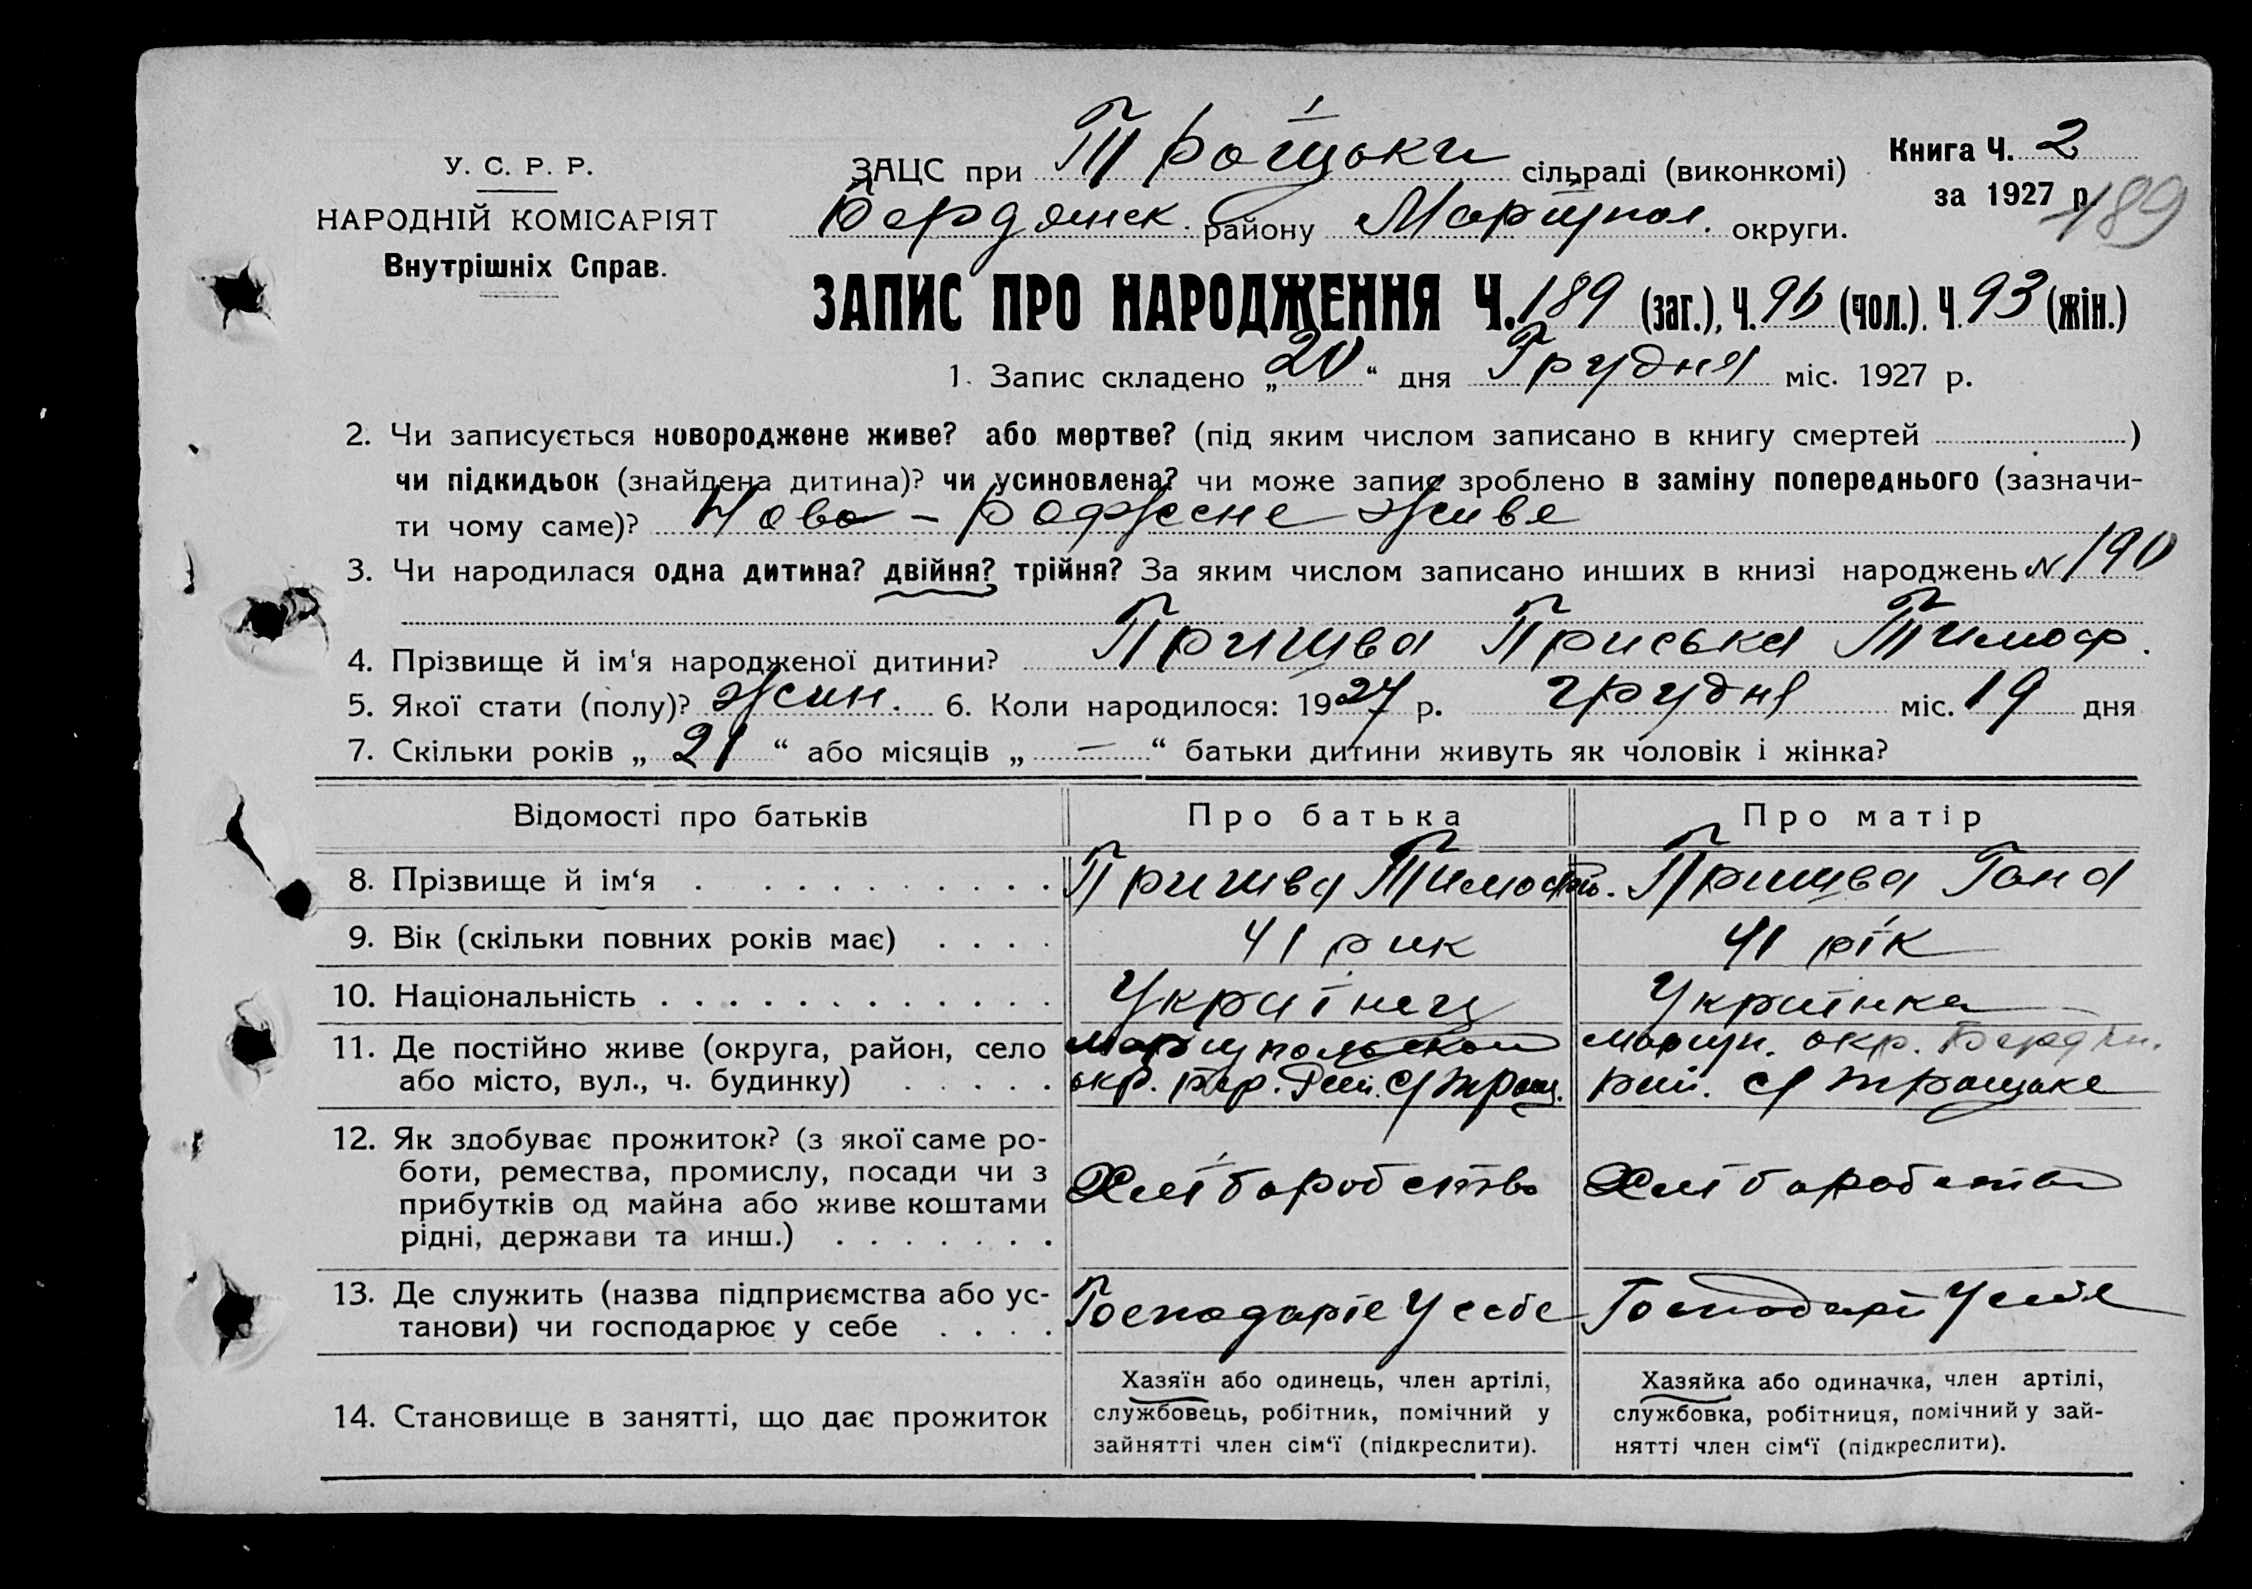 У. С. Р. Р.
НАРОДНІЙ КОМІСАРІЯТ
Внутрішніх Справ.
ЗАЦС при Троїцьки сільраді (виконкомі)
Бердянск. району Маріупол. округи.
Книга Ч. 2
за 1927 р.
189
ЗАПИС ПРО НАРОДЖЕННЯ Ч. 189 (заг.), Ч. 96 (чол.). Ч. 93 (жін.)
1. Запис складено „20“ дня Грудня міс. 1927 р.
2. Чи записується новороджене живе? або мертве? (під яким числом записано в книгу смертей )
чи підкидьок (знайдена дитина)? чи усиновлена? чи може запис зроблено в заміну попереднього (зазначи-
ти чому саме)? Ново-рожене живе
3. Чи народилася одна дитина? двійня? трійня? За яким числом записано инших в книзі народжень № 190
4. Прізвище й ім'я народженої дитини? Пришва Приська Тимоф.
5. Якої стати (полу)? жин. 6. Коли народилося: 1927 р. грудня міс. 19 дня
7. Скільки років „21“ або місяців „—“ батьки дитини живуть як чоловік і жінка?
Відомості про батьків Про батька Про матір
8. Прізвище й ім‘я Пришва Тимофій. Пришва Гана
9. Вік (скільки повних років має) 41 рик 41 рік
10. Національність Українец Українка
11. Де постійно живе (округа, район, село Маріупольской Маріуп. окр. Бердян.
або місто, вул., ч. будинку) окр. Бер. Рай. с/ Троиц. рай. с/ Троицьке
12. Як здобуває прожиток? (з якої саме ро-
боти, ремества, промислу, посади чи з Хліборобство Хліборобство
прибутків од майна або живе коштами
рідні, держави та инш.)
13. Де служить (назва підприємства або ус- Господаріе у себе Господарі у себе
танови) чи господарює у себе
14. Становище в занятті, що дає прожиток
Хазяїн або одинець, член артілі,
службовець, робітник, помічний у
зайнятті член сім‘ї (підкреслити).
Хазяйка або одиначка, член артілі,
службовка, робітниця, помічний у зай-
нятті член сім‘ї (підкреслити).